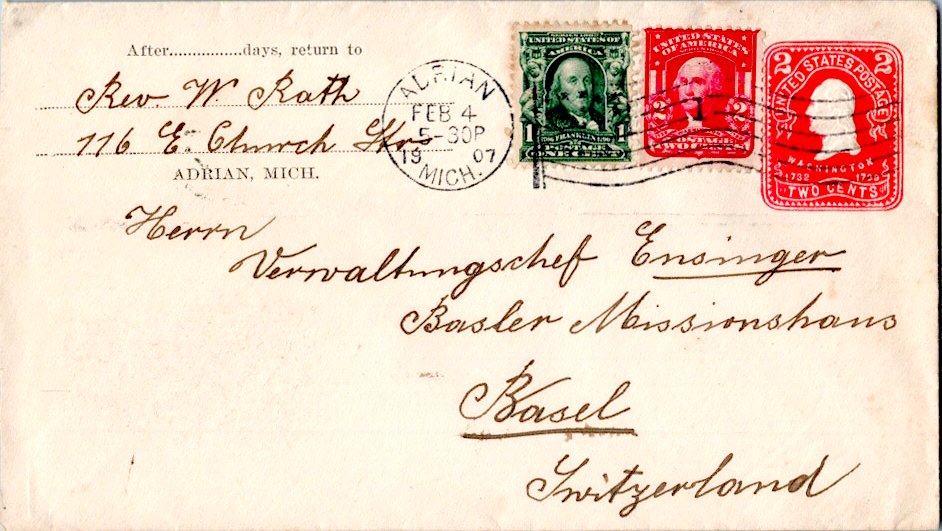 After...............days, return to
Rev. W. Rath
116 E. Church Str.
ADRIAN, MICH.
ADRIAN
FEB 4
5-30P
19 07
MICH.
SERIES 1902
UNITED STATES OF
AMERICA
1 FRANKLIN 1
POSTAGE
ONE CENT
UNITED STATES
OF AMERICA
2 2
POSTAGE
TWO CENTS
1
2 2
UNITED STATES POSTAGE
WASHINGTON
1732 1799
TWO CENTS
Herrn
Verwaltungschef Ensinger
Basler Missionshaus
Basel
Switzerland